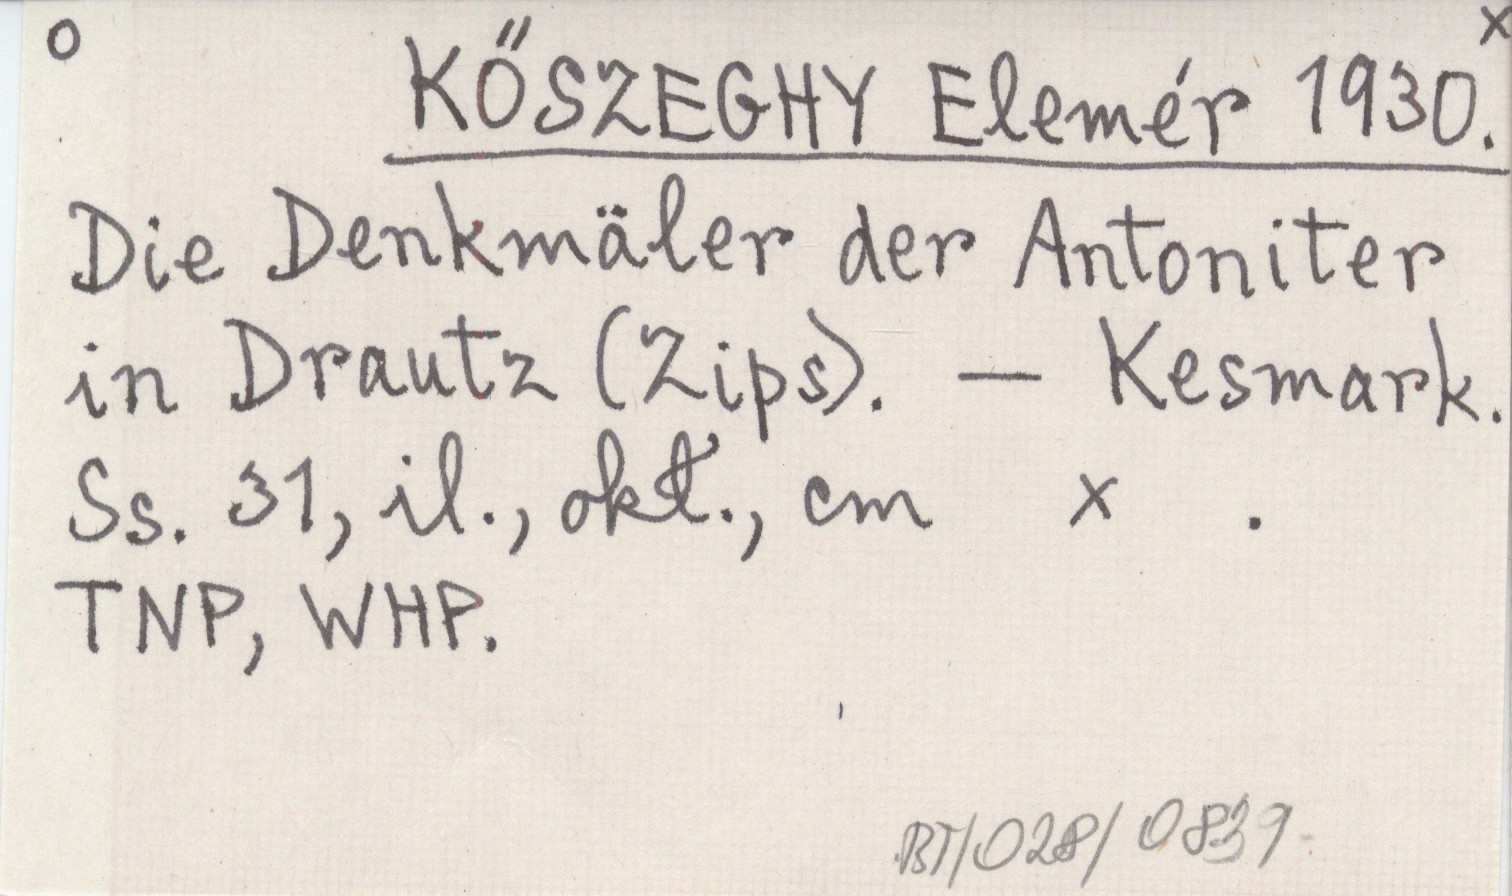 o x
KŐSZEGHY Elemér 1930.
Die Denkmäler der Antoniter
in Drautz (Zips). — Kesmark.
Ss. 31, il., okt., cm x .
TNP, WHP.
BT/028/0839